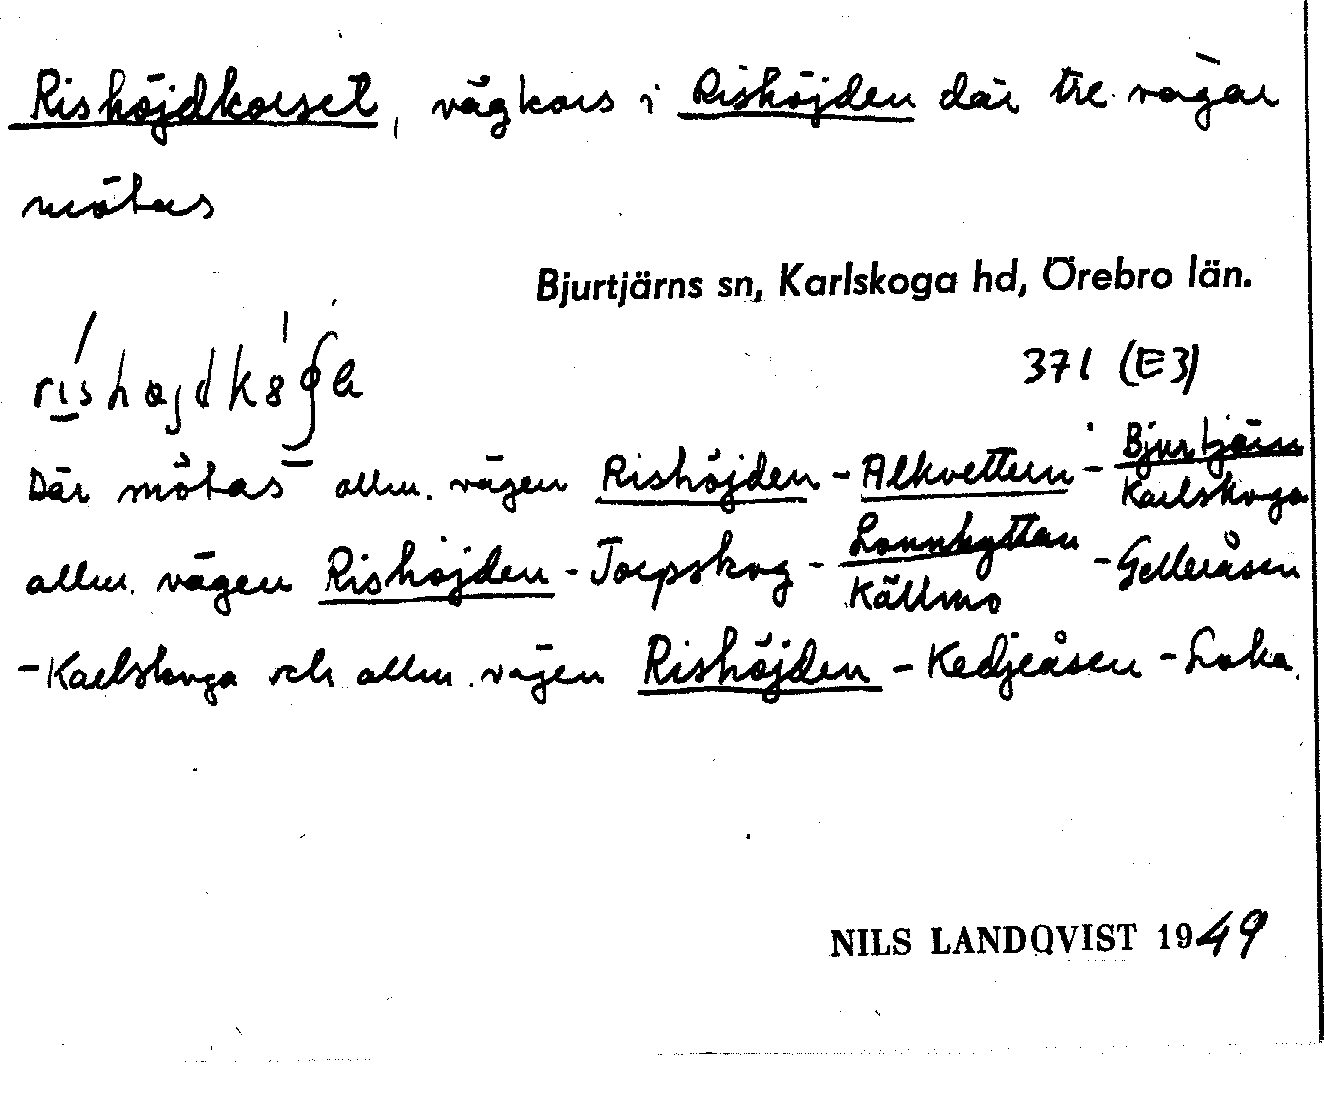 Rishöjdkorset, vägkors i Rishöjden där tre vägar
mötas
Bjurtjärns sn, Karlskoga hd, Örebro län.
371 (E3)
Där mötas allm. vägen Rishöjden - Alkvettern - Bjurtjärn
Karlskoga
allm. vägen Rishöjden - Torpskog - Lonnhyttan - Gelleråsen
Källmo
- Karlskoga och allm. vägen Rishöjden - Kedjeåsen - Loka.
NILS LANDQVIST 1949